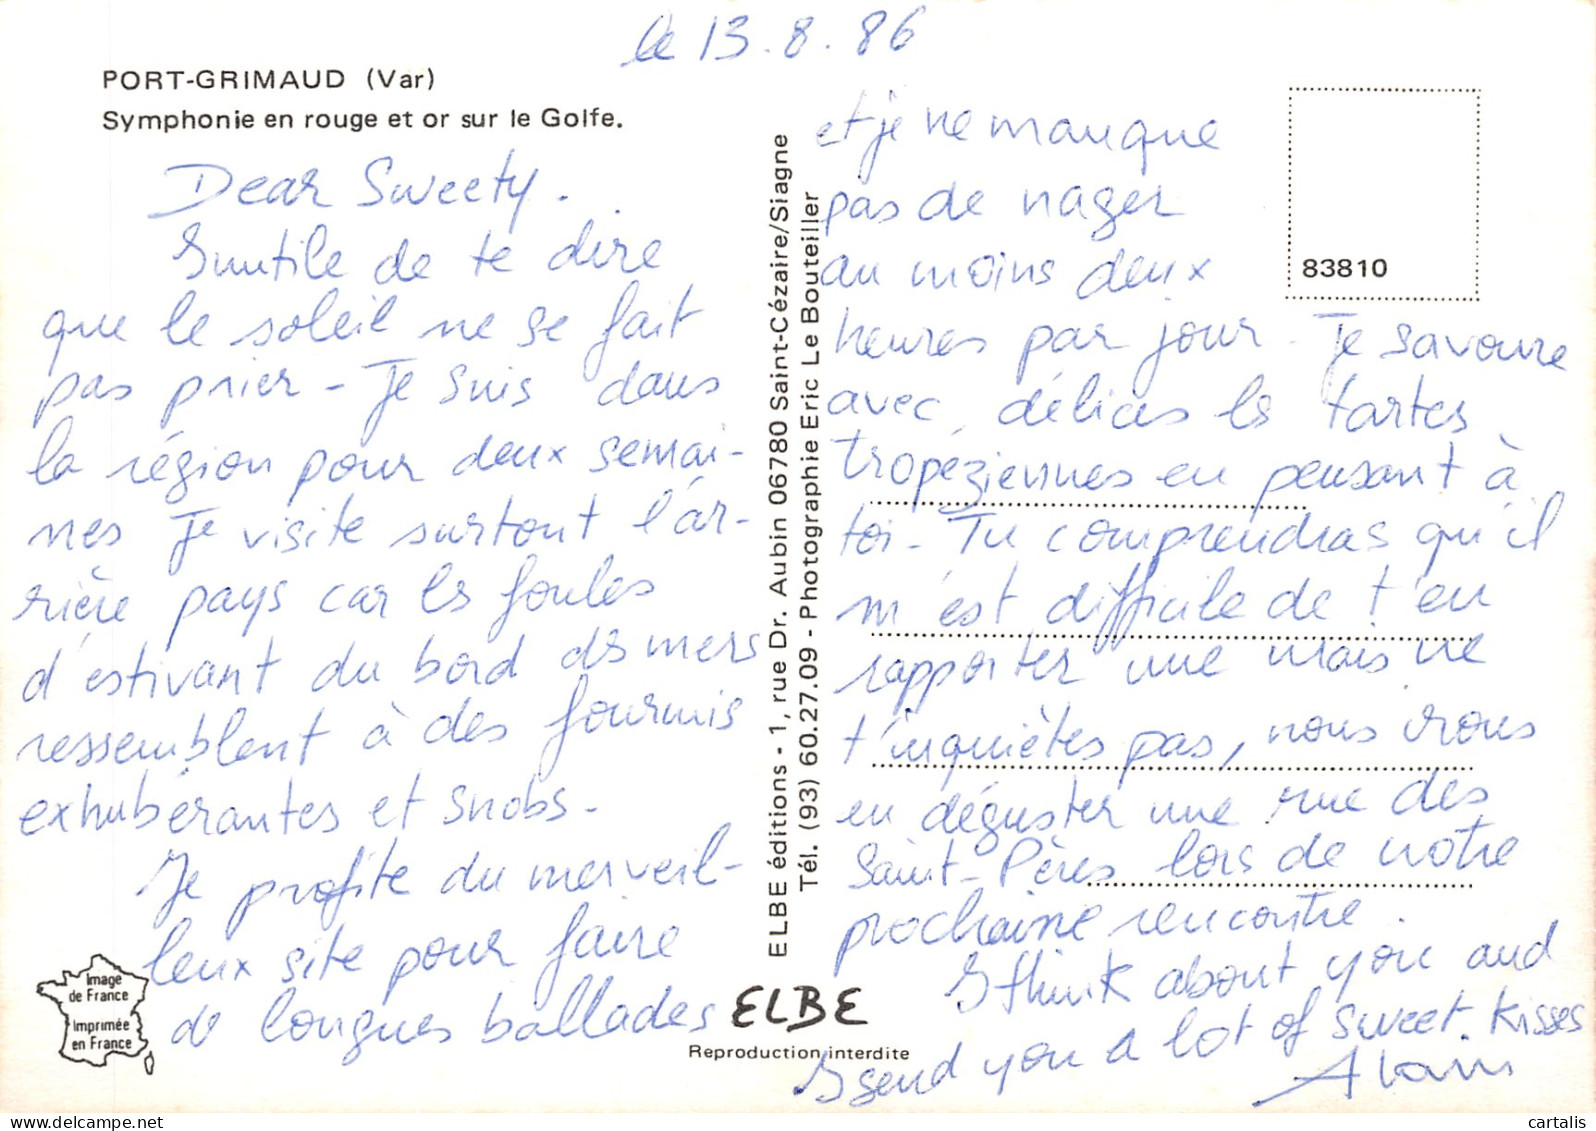 le 13.8.86
PORT-GRIMAUD (Var)
Symphonie en rouge et or sur le Golfe.
Dear Sweety.
Inutile de te dire
que le soleil ne se fait
pas prier - Je suis dans
la région pour deux semai-
nes Je visite surtout l'ar-
rière pays car les foules
d'estivant du bord des mers
ressemblent à des fourmis
exhubérantes et snobs -
Je profite du merveil-
leux site pour faire
de longues ballades
et je ne manque
pas de nager
au moins deux
heures par jour - Je savoure
avec délices les tartes
tropéziennes en pensant à
toi - Tu comprendras qu'il
m'est difficile de t'en
rapporter une mais ne
t'inquiètes pas, nous irons
en déguster une rue des
Saint-Pères lors de notre
prochaine rencontre.
I think about you and
I send you a lot of sweet kisses
Alain
83810
ELBE éditions - 1, rue Dr. Aubin 06780 Saint-Cézaire/Siagne
Tél. (93) 60.27.09 - Photographie Eric Le Bouteiller
Image
de France
Imprimée
en France
ELBE
Reproduction interdite
cartalis